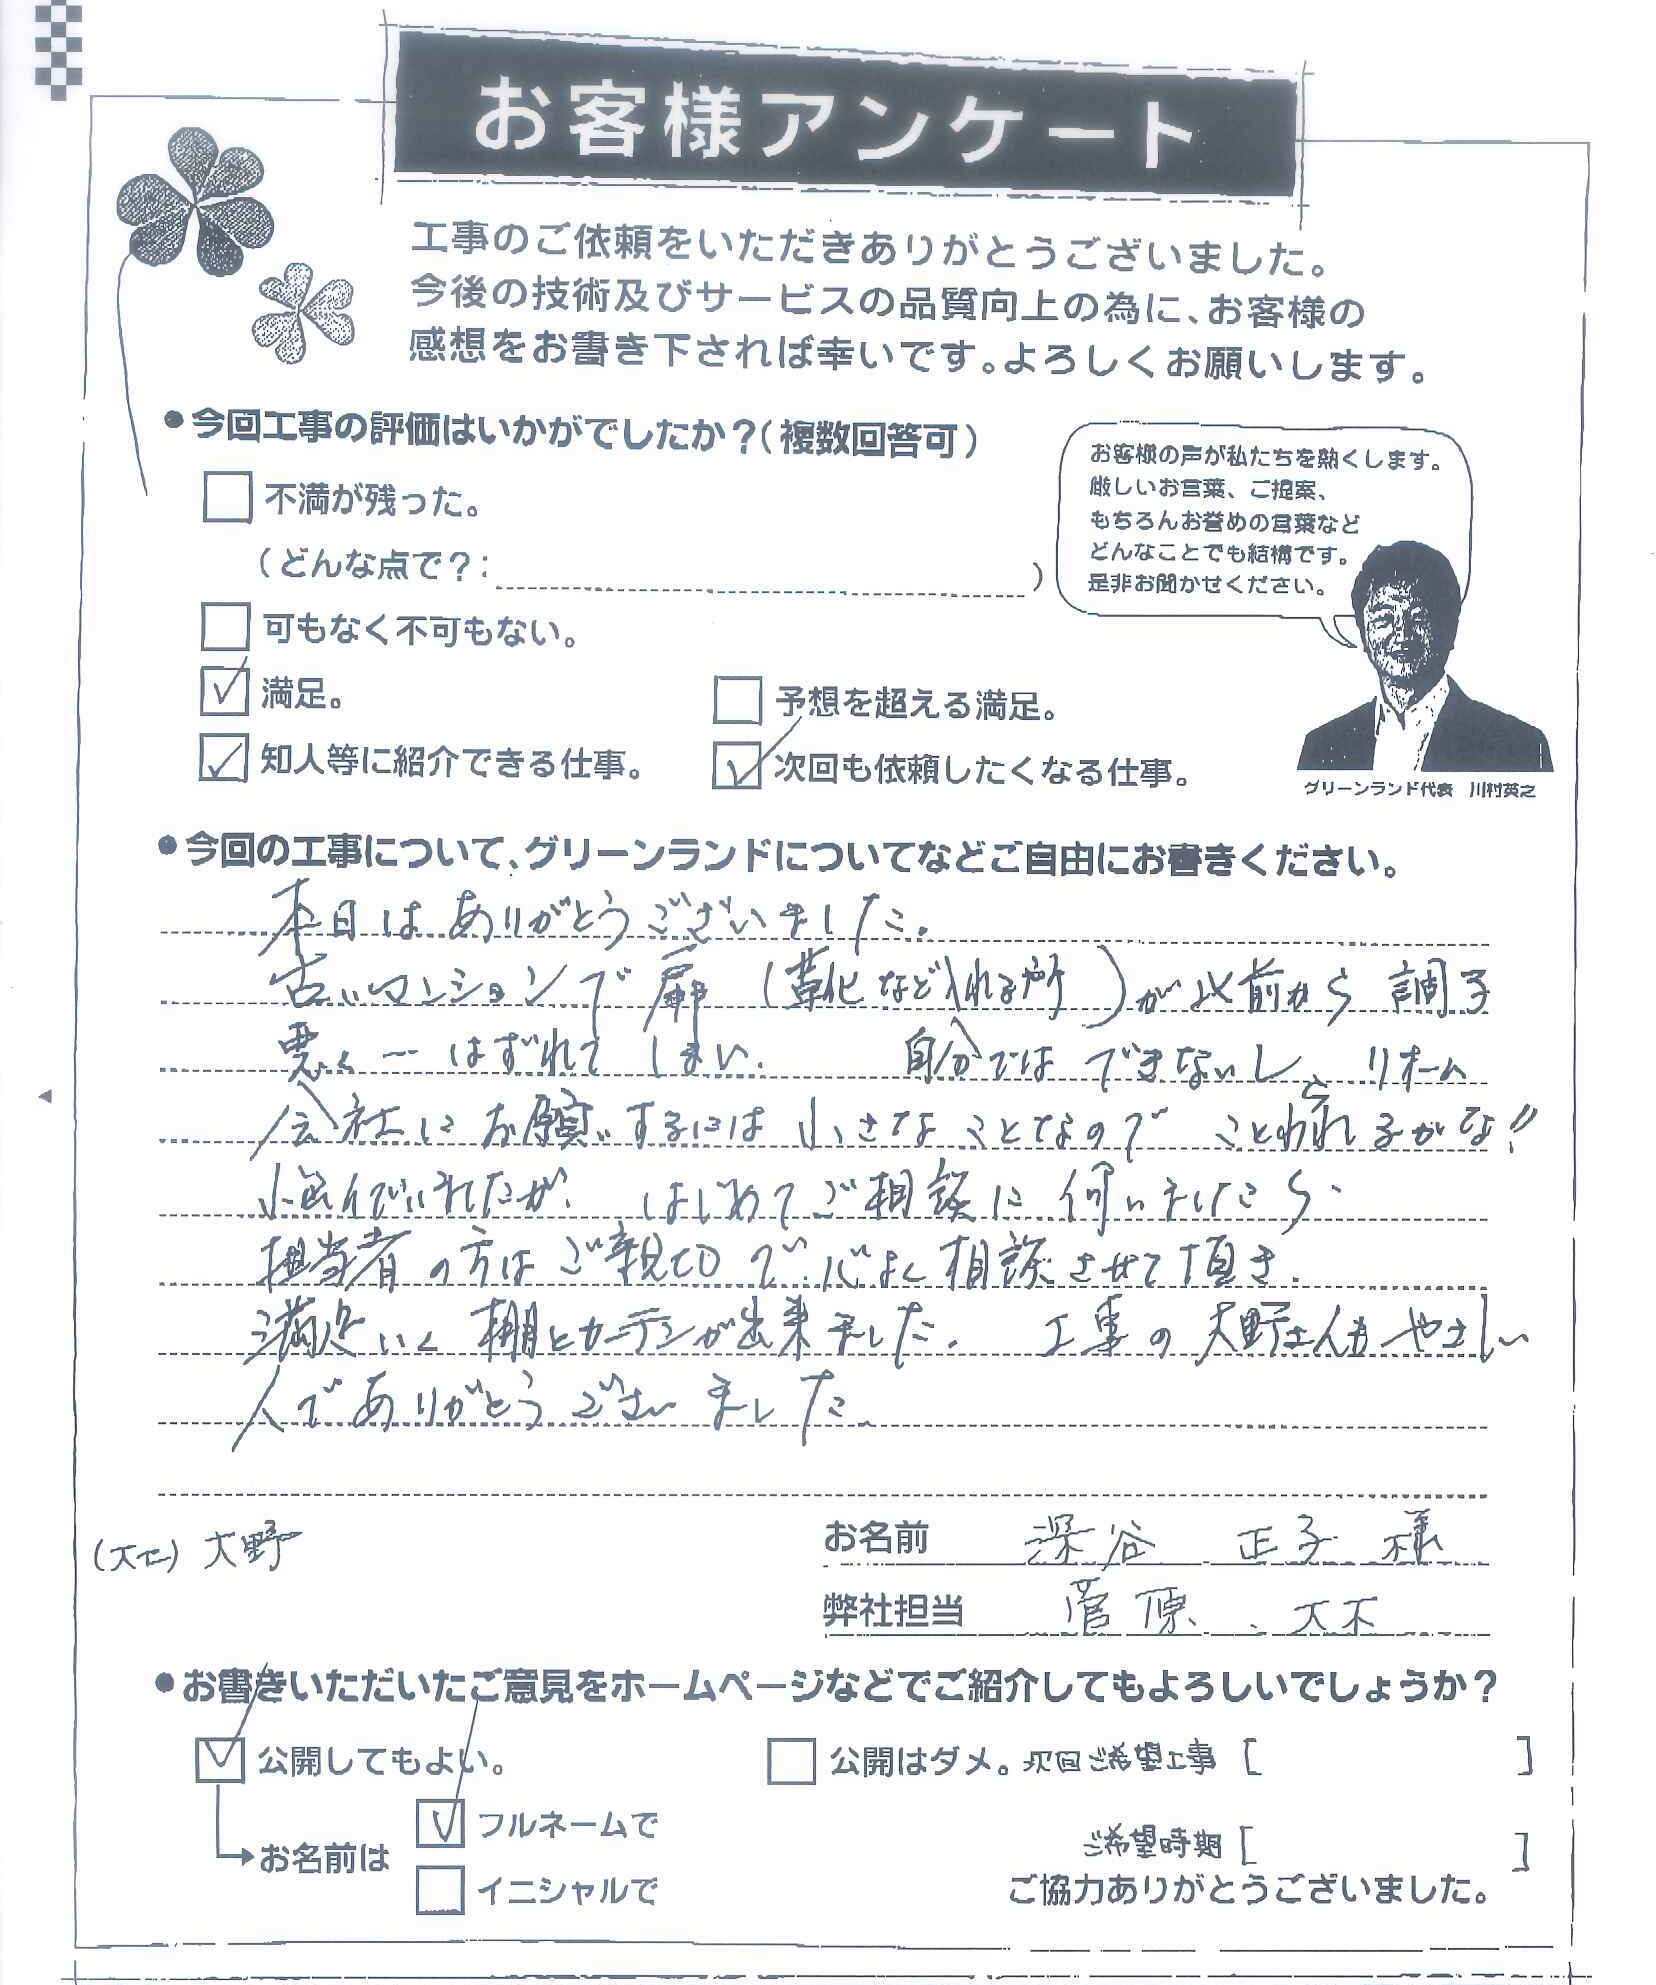 お客様アンケート
工事のご依頼をいただきありがとうございました。
今後の技術及びサービスの品質向上の為に、お客様の
感想をお書き下されば幸いです。よろしくお願いします。
●今回工事の評価はいかがでしたか？（複数回答可）
不満が残った。
（どんな点で？： ）
可もなく不可もない。
満足。
予想を超える満足。
知人等に紹介できる仕事。
次回も依頼したくなる仕事。
お客様の声が私たちを熱くします。
厳しいお言葉、ご提案、
もちろんお誉めの言葉など
どんなことでも結構です。
是非お聞かせください。
グリーンランド代表 川村英之
●今回の工事について、グリーンランドについてなどご自由にお書きください。
本日はありがとうございました。
古いマンションで扉（靴など入れる所）が以前から調子
悪く…はずれてしまい、自分ではできないし、リホーム
会社にお願いするには小さなことなのでことわられるかな!!
悩んでいましたが、はじめてご相談に伺いましたら、
担当者の方はご親切で心よく相談させて頂き、
満足いく棚とカーテンが出来ました。工事の大野さんもやさしい
人でありがとうございました。
お名前 深谷 正子 様
(大工) 大野
弊社担当 菅原、
●お書きいただいたご意見をホームページなどでご紹介してもよろしいでしょうか？
公開してもよい。
公開はダメ。次回ご希望工事［ ］
お名前は
フルネームで
イニシャルで
ご希望時期［ ］
ご協力ありがとうございました。